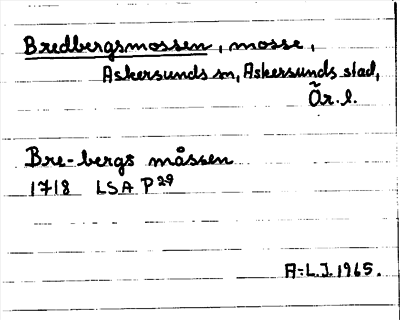 Bredbergsmossen, mosse,
Askersunds sn, Askersunds stad,
Ör. l.
Bre-bergs måssen
1718 LSA P29
A-L.J. 1965.